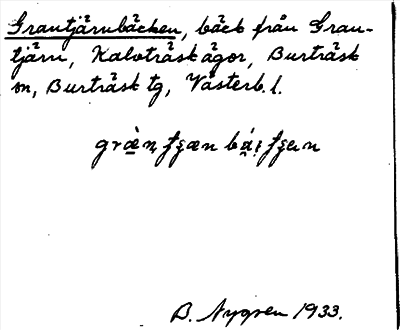 Grantjärnbäcken, bäck från Gran-
tjärn, Kalvträsk ägor, Burträsk
sn, Burträsk tg, Västerb. l.
B. Nygren 1933.